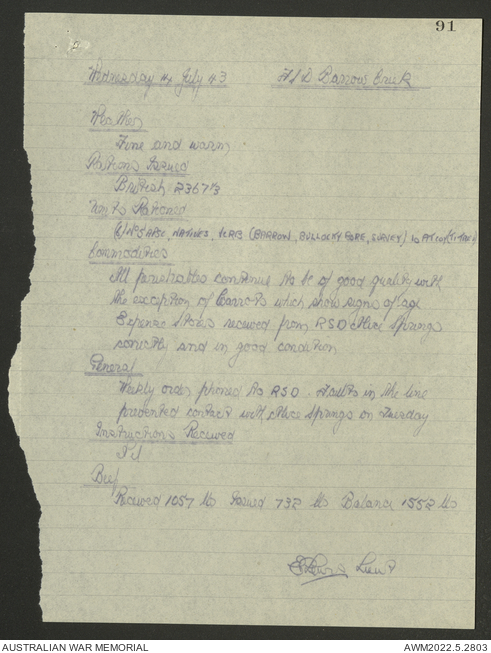 91
Wednesday 14 July 43 FSD Barrow Creek
Weather
Fine and warm
Rations Issued
British 2367⅓
Units Rationed
NATIVES, (BARROW, BULLOCKY BORE, SURVEY)
Commodities
All perishables continue to be of good quality with
the exception of Carrots which show signs of age
Expense Stores received from RSO Alice Springs
correctly and in good condition
General
Weekly order phoned to RSO. Faults in the line
prevented contact with Alice Springs on Tuesday
Instructions Received
Nil
Beef
Received 1057 lbs Issued 732 lbs Balance 1552 lbs
Lieut
AUSTRALIAN WAR MEMORIAL AWM2022.5.2803